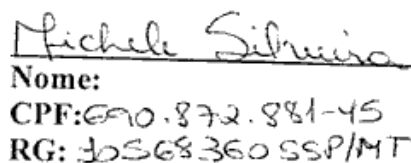 Michele Silveira
Nome:
CPF:690.872.881-45
RG: 10568360 SSP/MT